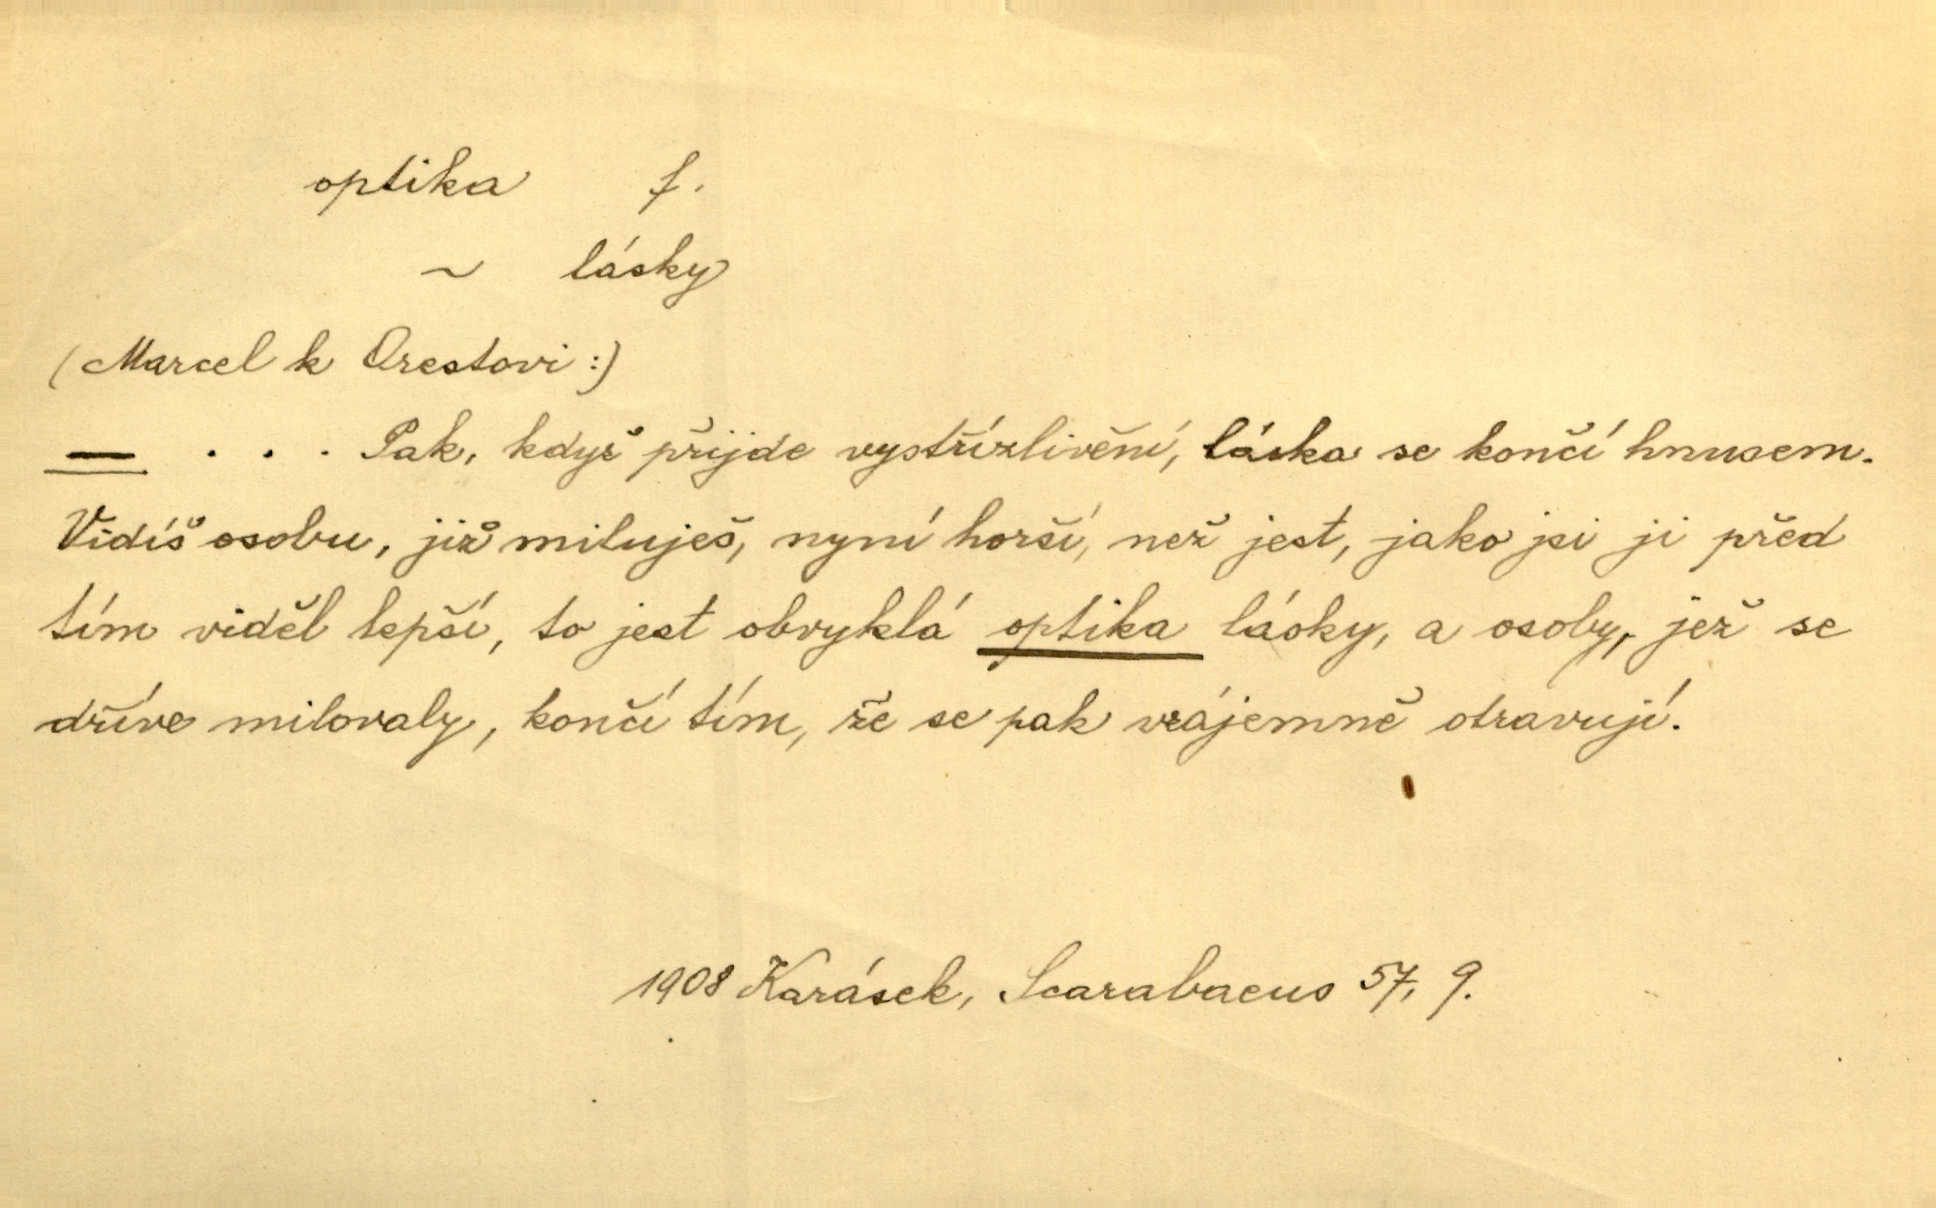 optika f.
~ lásky
(Marcel k Orestovi:)
— . . . Pak, když přijde vystřízlivění, láska se končí hnusem.
Vidíš osobu, již miluješ, nyní horší, než jest, jako jsi ji před
tím viděl lepší, to jest obvyklá optika lásky, a osoby, jež se
dříve milovaly, končí tím, že se pak vzájemně otravují.
1908 Karásek, Scarabaeus 57, 9.